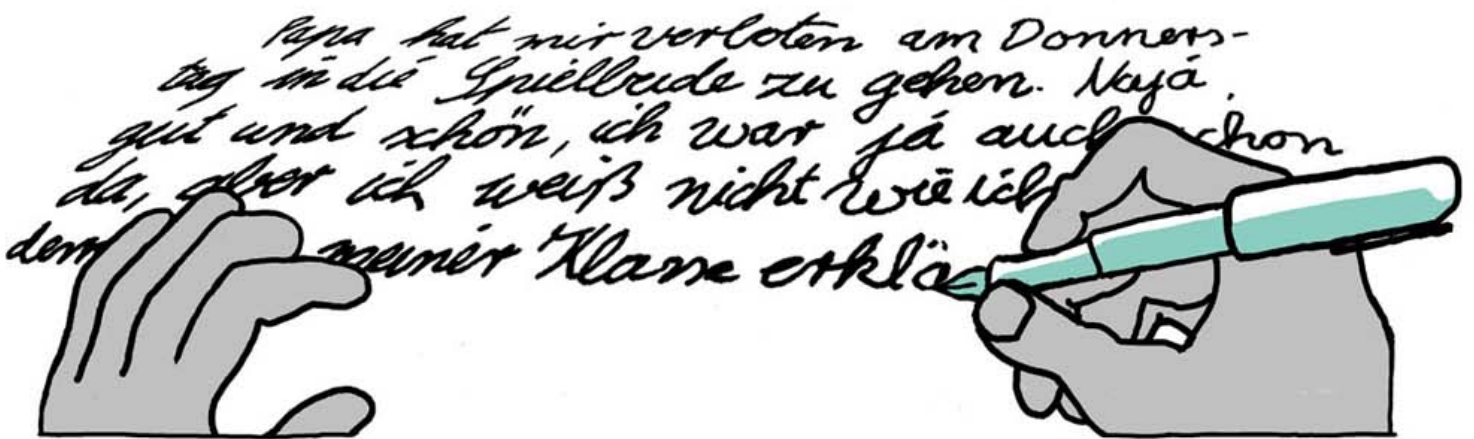 Papa hat mir verboten am Donners-
tag in die Spielbude zu gehen. Naja,
gut und schön, ich war ja auch schon
da, aber ich weiß nicht wie ich
meiner Klasse erklä